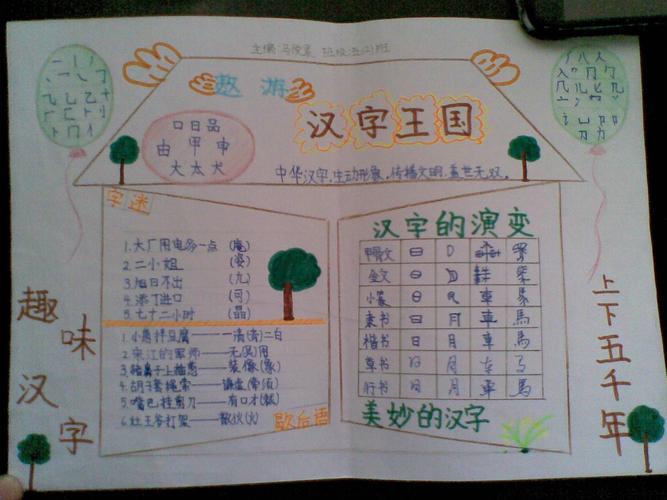 主编:马俊豪 班级:五(2)班
遨游
汉字王国
口日品
由甲申
大太犬
中华汉字,生动形象,传播文明,盖世无双。
字迷
1.大厂用电多一点 (庵)
2.二小姐 (姿)
3.旭日不出 (九)
4.添丁进口 (可)
5.七十二小时 (晶)
1.小葱拌豆腐——清(青)二白
2.宋江的军师——无(吴)用
3.猪鼻子上插葱——装像(象)
4.胡子套绳索——谦虚(牵须)
5.嘴巴挂剪刀——有口才(裁)
6.灶王爷打架——散伙(火)
歇后语
汉字的演变
甲骨文
金文
小篆 日 車 馬
隶书 日 月 車 馬
楷书 日 月 車 馬
草书
行书 日 月 車 馬
美妙的汉字
趣味汉字
上下五千年